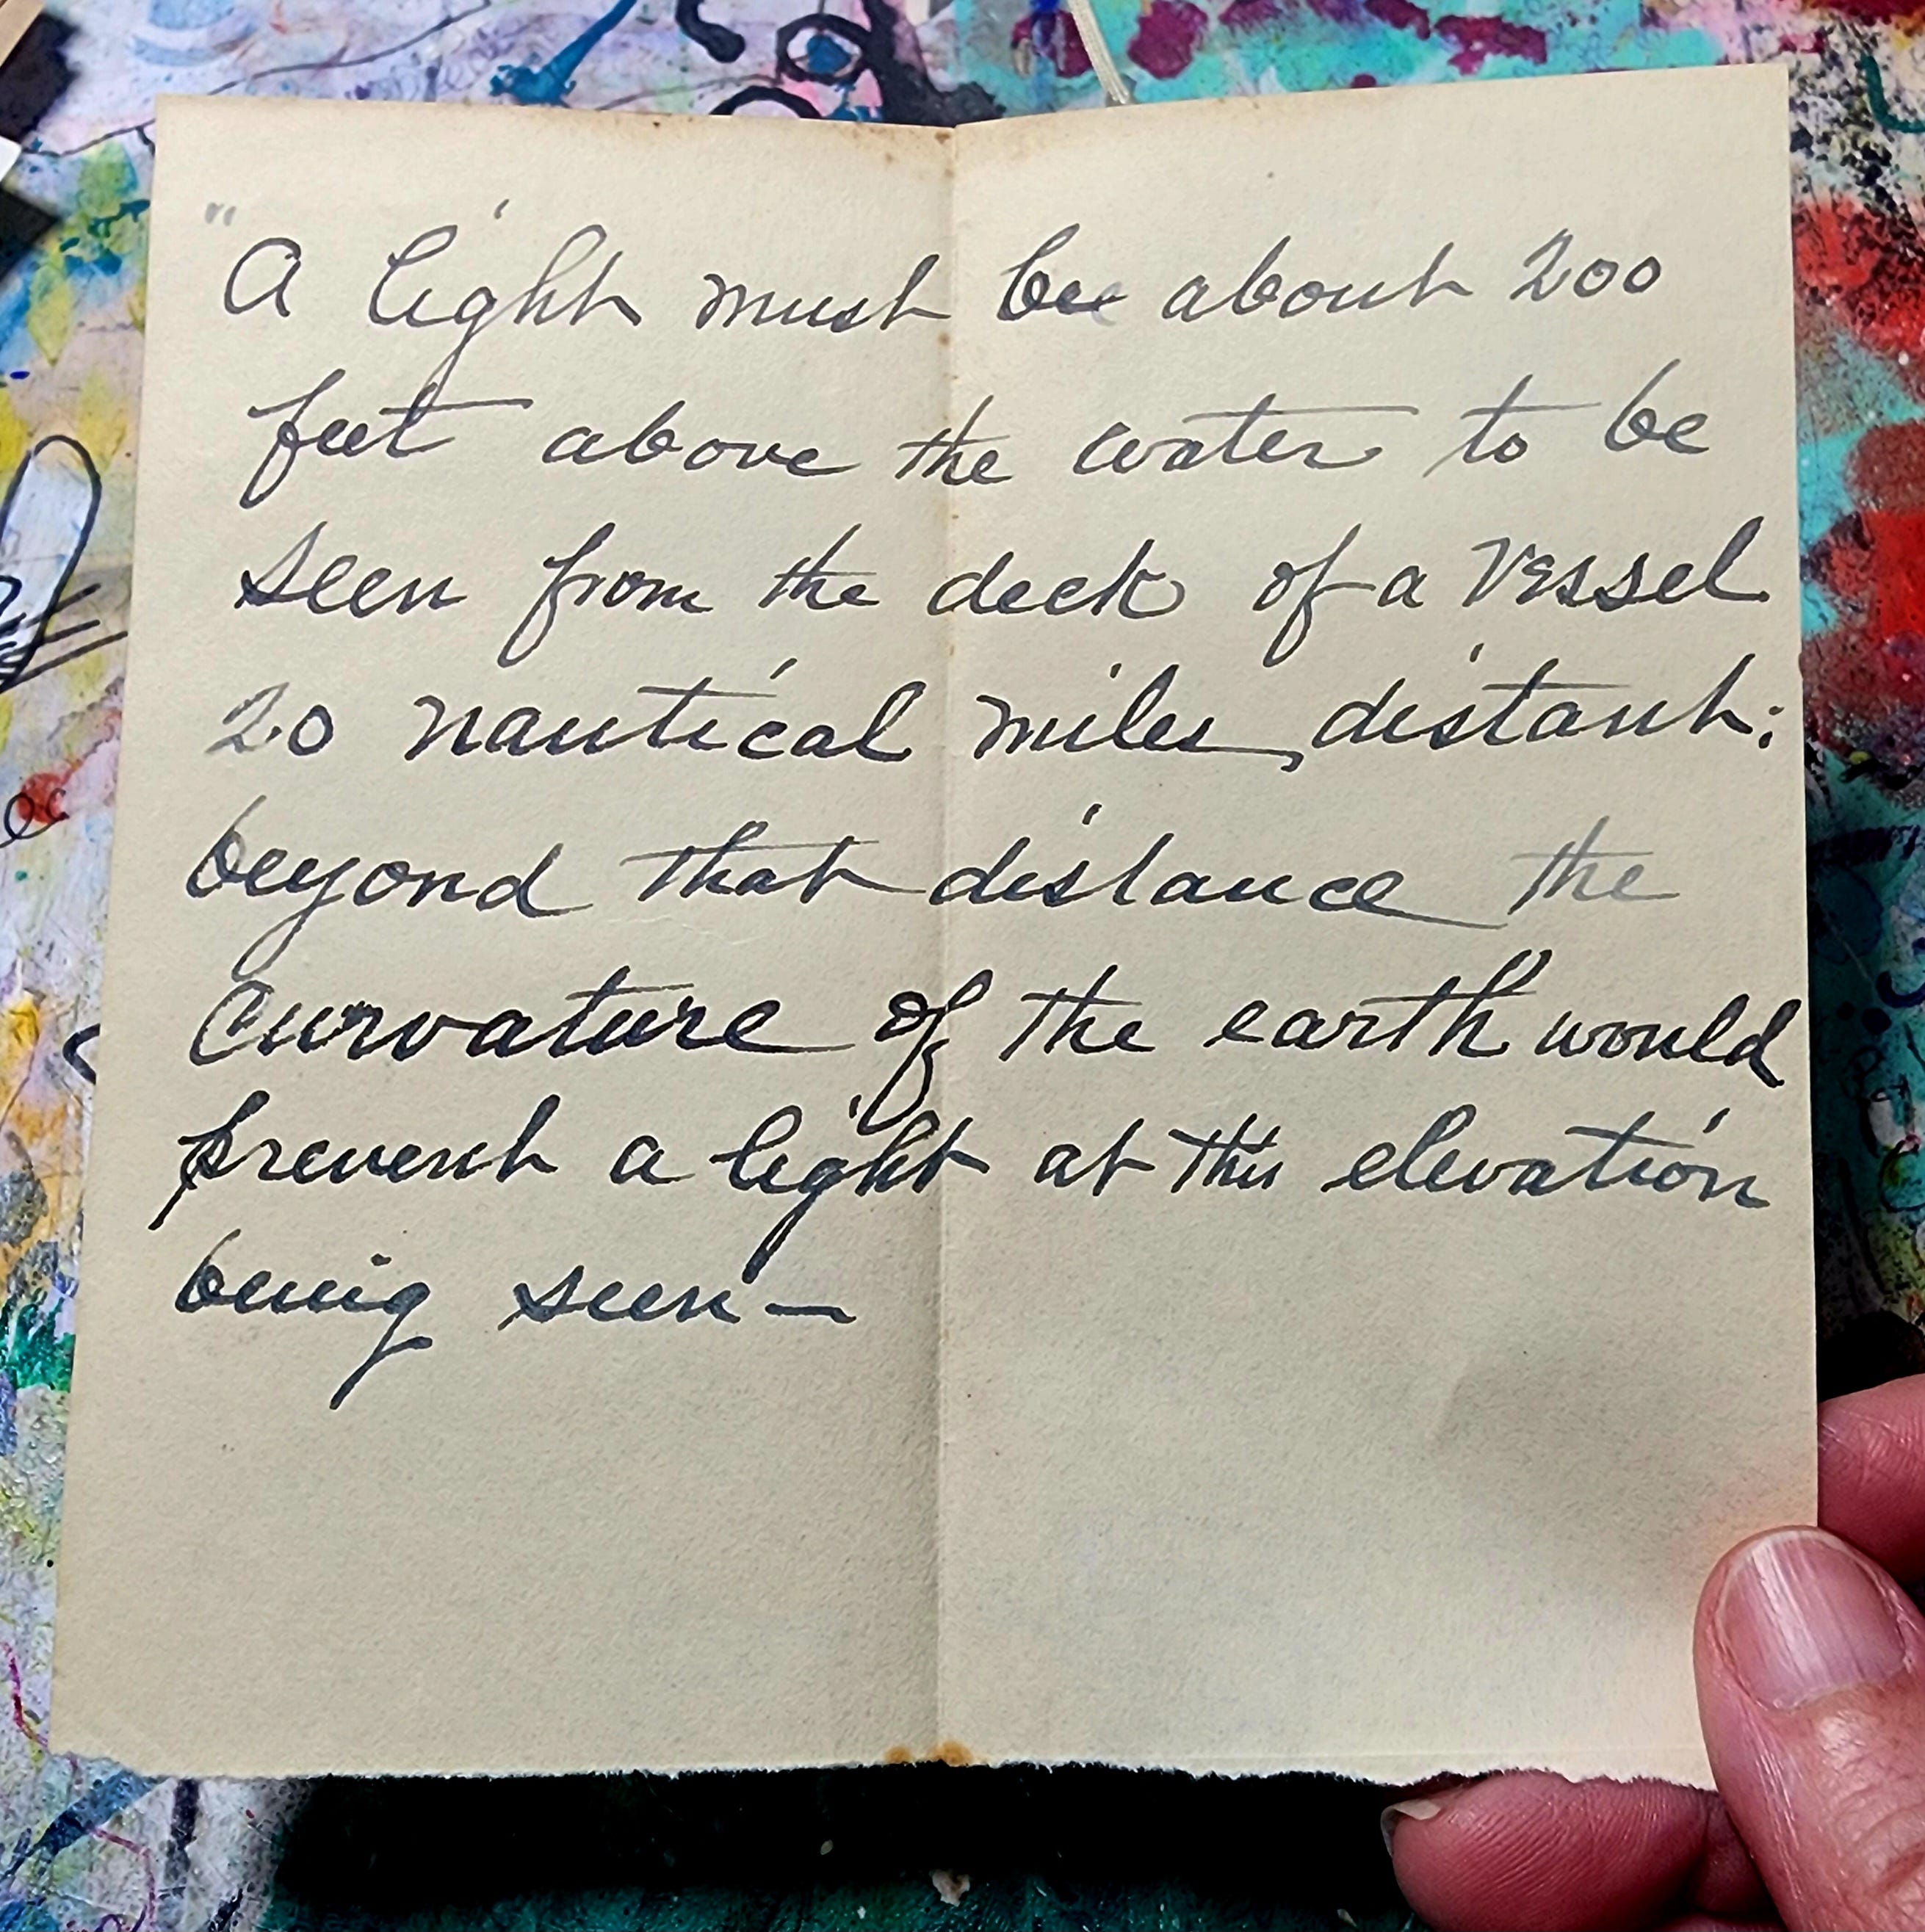 "A light must be about 200
feet above the water to be
seen from the deck of a vessel
20 nautical miles, distant;
beyond that distance the
curvature of the earth would
prevent a light at this elevation
being seen—